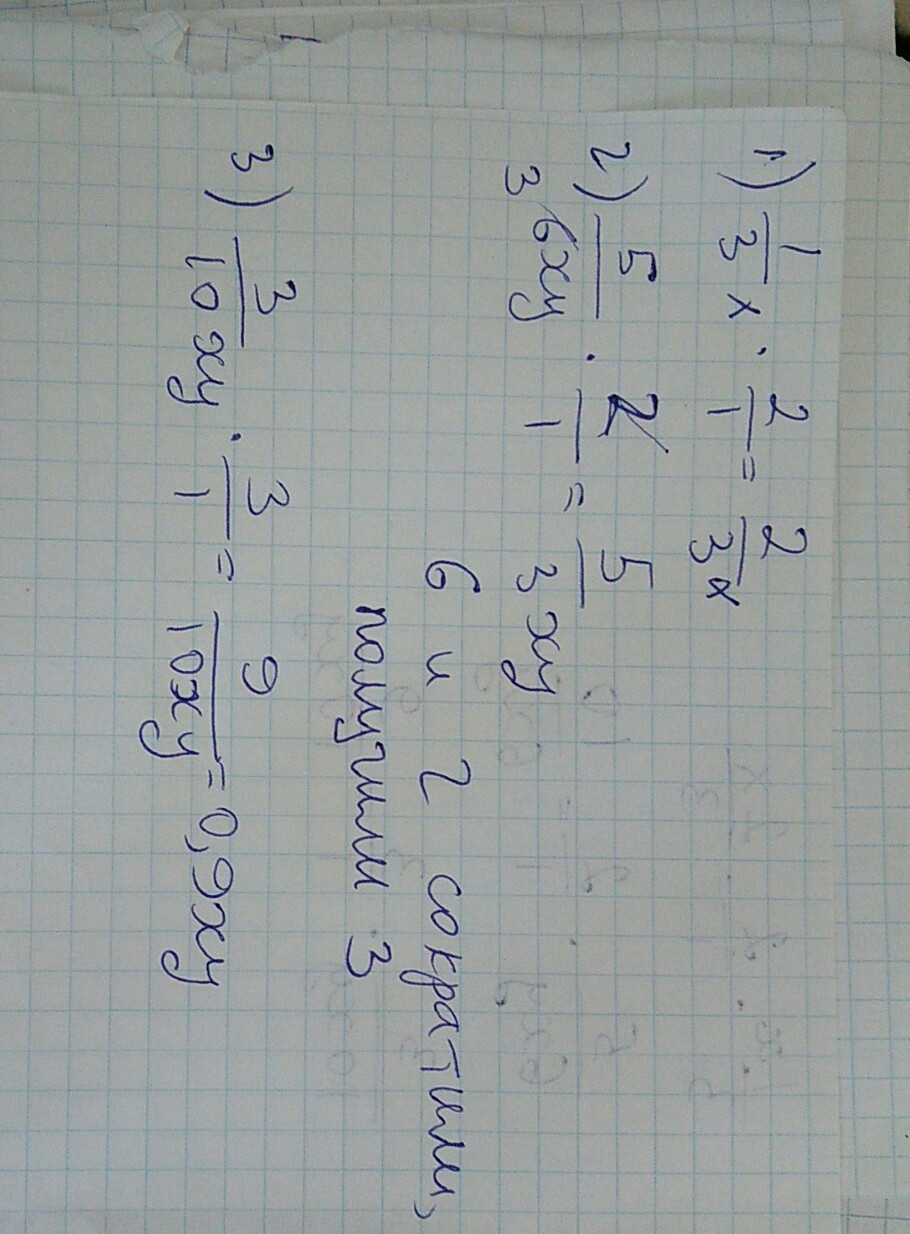 1) 1/3 x · 2/1 = 2/3 x
2) 5/6xy · 2/1 = 5/3 xy
3
6 и 2 сократим,
получим 3
3) 3/10 xy · 3/1 = 9/10xy = 0,9xy